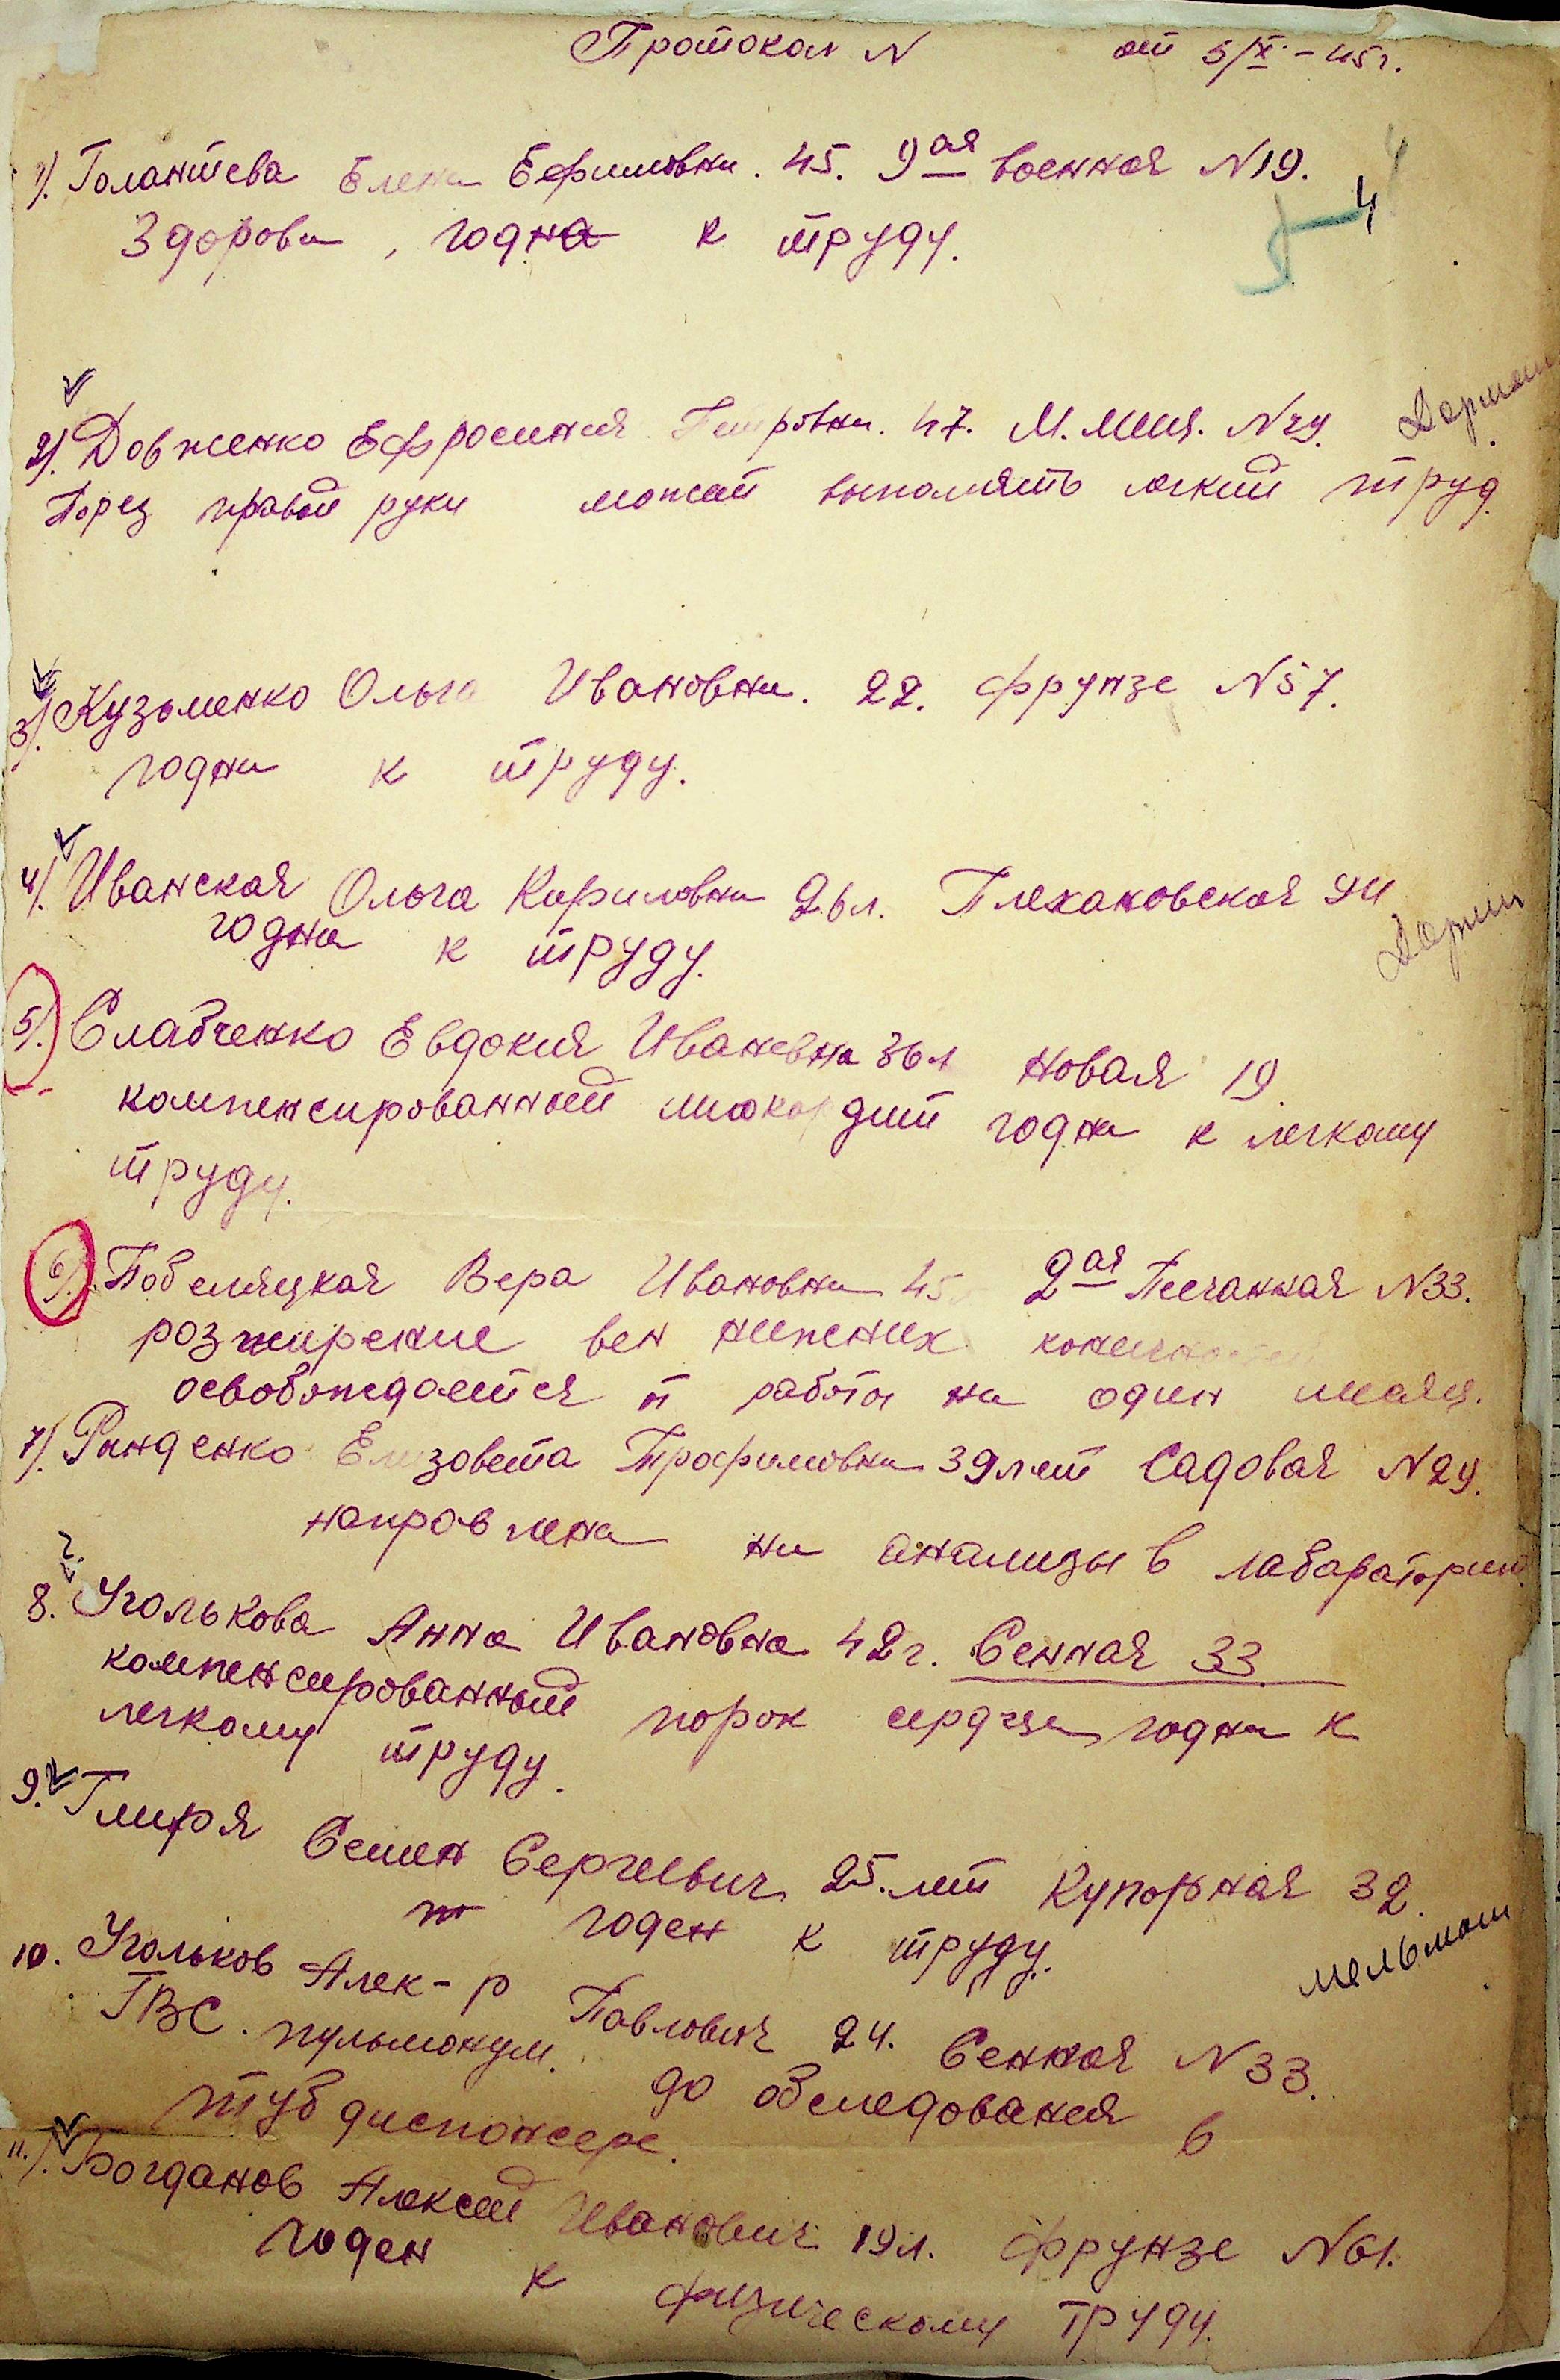 Протокол N от 5/X - 45 г.
1). Голантева Елена Ефимовна. 45. 9ая военная N19.
Здорова, годна к труду.
4
2). Довженко Ефросиния Петровна. 47. М.
Порез правой руки может выполнять легкий труд
3). Кузьменко Ольга Ивановна. 22. Фрунзе N57.
годна к труду.
4). Иванская Ольга Кириловна 26 л. Плехановская
годна к труду.
5). Слабченко Евдокия Ивановна 36 л Новая 19
компенсированный миокардит годна к легкому
труду.
6). Побеляцкая Вера Ивановна 45 2ая Песчанная N33.
розширение вен нижних конечностей
освобождается от работы на один месяц.
7). Ринденко Елизовета Трофимовна 39 лет Садовая N24.
направлена на анализы в лабараторию.
8. Уголькова Анна Ивановна 42 г. Сенная 33
компенсированный порок сердца, годна к
легкому труду.
9. Глиря Семен Сергеевич 25. лет Купорная 32.
годен к труду.
мельмаш
10. Угольков Алек-р Павлович 24. Сенная N33.
ТВС. пульмонум. до обследования в
туб диспансере.
11.). Богданов Алексей Иванович 19 л. Фрунзе N61.
годен к физическому труду.